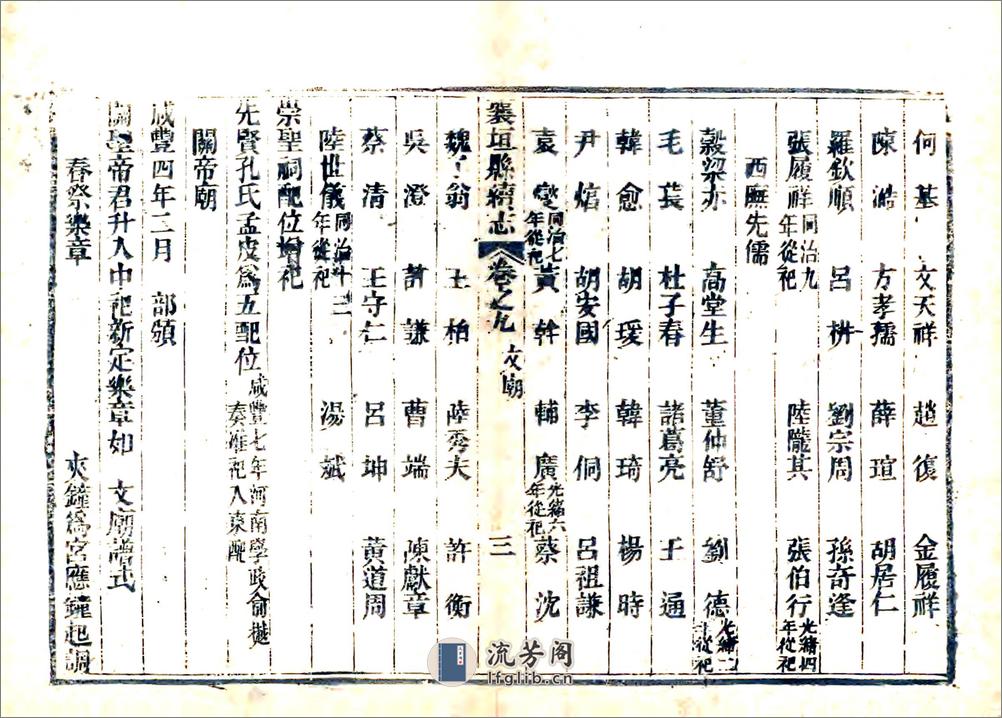 何基　文天祥　趙復　金履祥
陳澔　方孝孺　薛瑄　胡居仁
羅欽順　呂柟　劉宗周　孫奇逢
張履祥同治九年從祀　陸隴其　張伯行光緒四年從祀
西廡先儒
穀梁赤　高堂生　董仲舒　劉德光緒二年從祀
毛萇　杜子春　諸葛亮　王通
韓愈　胡瑗　韓琦　楊時
尹焞　胡安國　李侗　呂祖謙
袁燮同治七年從祀　黃榦　輔廣光緒六年從祀　蔡沈
襄垣縣續志　卷之九　文廟　三
魏了翁　王柏　陸秀夫　許衡
吳澄　許謙　曹端　陳獻章
蔡清　王守仁　呂坤　黃道周
陸世儀同治十二年從祀　湯斌
崇聖祠配位增祀
先賢孔氏孟皮為五配位咸豐七年河南學政俞樾奏准祀入東配
關帝廟
咸豐四年三月　部頒
關聖帝君升入中祀新定樂章如　文廟譜式
春祭樂章　夾鐘為宮應鐘起調
流芳阁
lfglib.cn